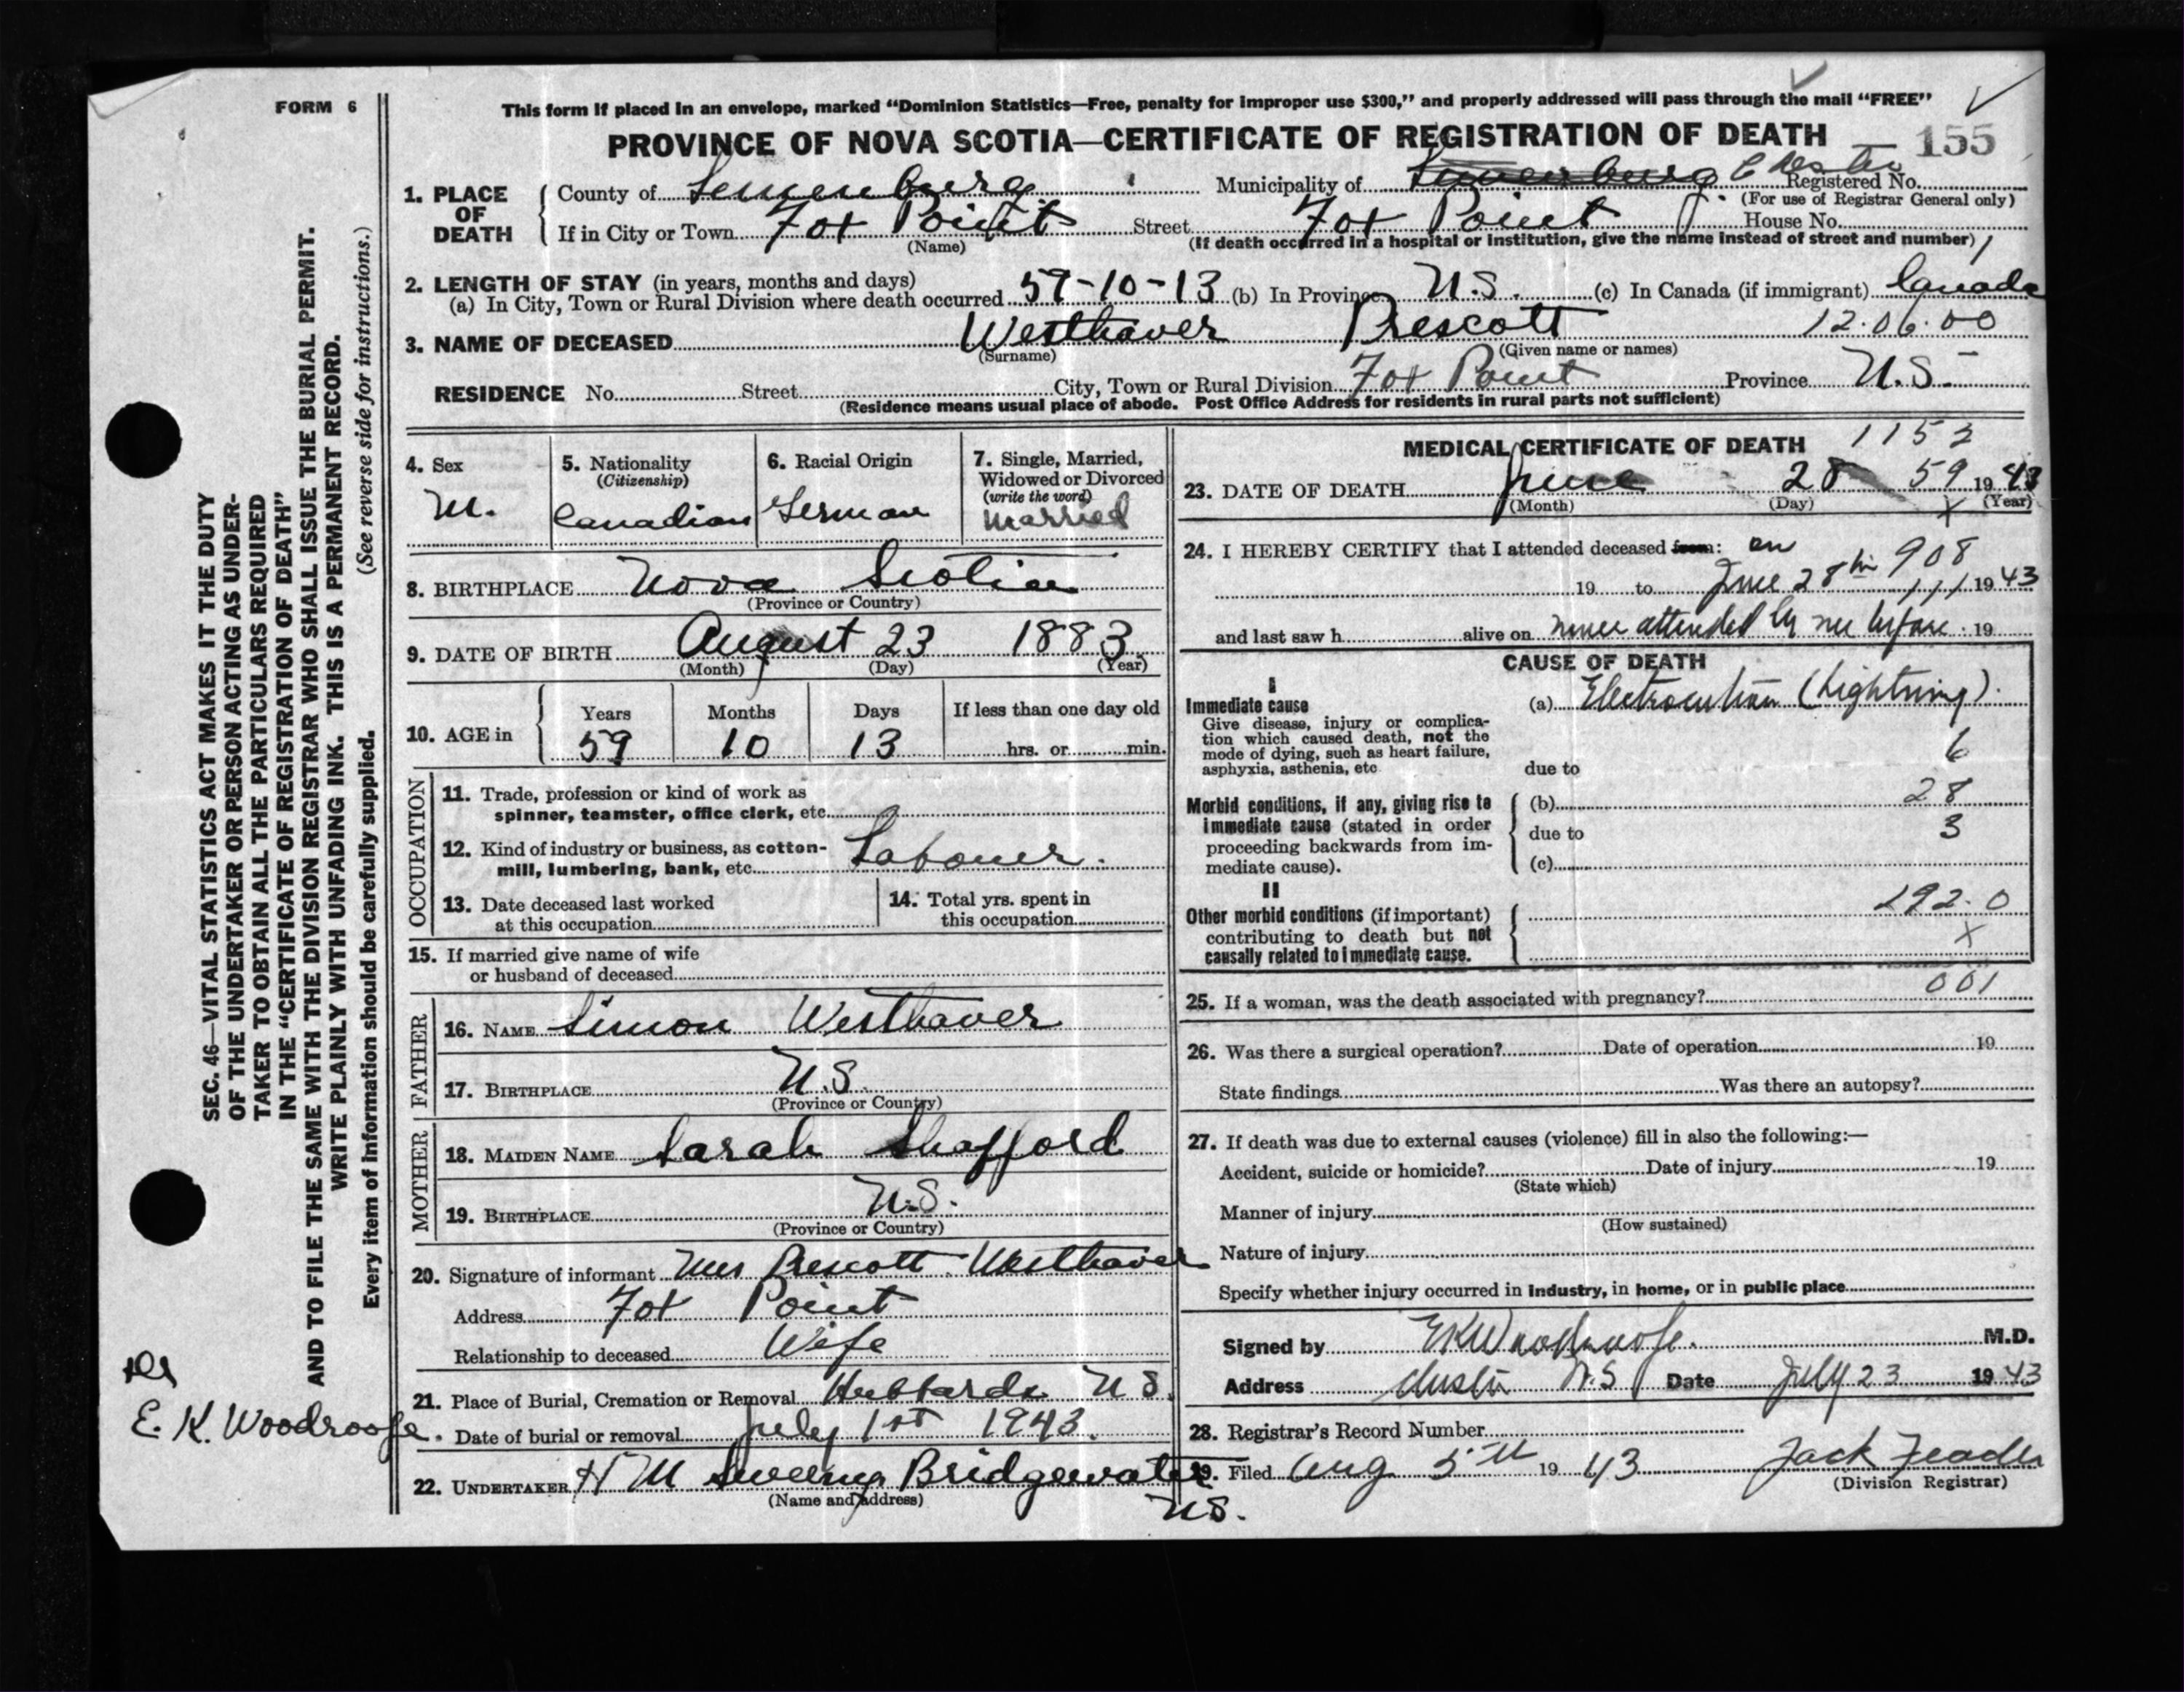 FORM 6
This form if placed in an envelope, marked “Dominion Statistics—Free, penalty for improper use $300,” and properly addressed will pass through the mail “FREE”
PROVINCE OF NOVA SCOTIA—CERTIFICATE OF REGISTRATION OF DEATH 155
1. PLACE OF DEATH
County of Lunenburg Municipality of Lunenburg Chester Registered No.
(For use of Registrar General only)
If in City or Town Fox Point Street Fox Point House No.
(Name) (If death occurred in a hospital or institution, give the name instead of street and number)
2. LENGTH OF STAY (in years, months and days)
(a) In City, Town or Rural Division where death occurred 59-10-13 (b) In Province N.S. (c) In Canada (if immigrant) Canada
3. NAME OF DECEASED Westhaver Prescott 12.06.00
(Surname) (Given name or names)
RESIDENCE No. Street City, Town or Rural Division Fox Point Province N.S.
(Residence means usual place of abode. Post Office Address for residents in rural parts not sufficient)
4. Sex
M.
5. Nationality
(Citizenship)
Canadian
6. Racial Origin
German
7. Single, Married,
Widowed or Divorced
(write the word)
Married
8. BIRTHPLACE Nova Scotia
(Province or Country)
9. DATE OF BIRTH August 23 1883
(Month) (Day) (Year)
10. AGE in
Years Months Days If less than one day old
59 10 13 hrs. or min.
OCCUPATION
11. Trade, profession or kind of work as
spinner, teamster, office clerk, etc.
12. Kind of industry or business, as cotton-
mill, lumbering, bank, etc. Labouer.
13. Date deceased last worked
at this occupation
14. Total yrs. spent in
this occupation
15. If married give name of wife
or husband of deceased
FATHER
16. NAME Simon Westhaver
17. BIRTHPLACE N.S.
(Province or Country)
MOTHER
18. MAIDEN NAME Sarah Shafford
19. BIRTHPLACE N.S.
(Province or Country)
20. Signature of informant Mrs Prescott Westhaver
Address Fox Point
Relationship to deceased Wife
21. Place of Burial, Cremation or Removal Hubbards N S.
Date of burial or removal July 1st 1943.
22. UNDERTAKER H M Sweeny Bridgewater
(Name and address)
NS.
MEDICAL CERTIFICATE OF DEATH 1152
23. DATE OF DEATH June 28 59 1943
(Month) (Day) (Year)
X
24. I HEREBY CERTIFY that I attended deceased from: on
908
19 to June 28th 111 1943
and last saw h alive on never attended by me before 19
CAUSE OF DEATH
I
Immediate cause
Give disease, injury or complica-
tion which caused death, not the
mode of dying, such as heart failure,
asphyxia, asthenia, etc
(a) Electrocution (Lightning).
6
due to
Morbid conditions, if any, giving rise to
immediate cause (stated in order
proceeding backwards from im-
mediate cause).
(b) 28
due to 3
(c)
II
Other morbid conditions (if important)
contributing to death but not
causally related to immediate cause.
192.0
X
25. If a woman, was the death associated with pregnancy? 001
26. Was there a surgical operation? Date of operation 19
State findings Was there an autopsy?
27. If death was due to external causes (violence) fill in also the following:—
Accident, suicide or homicide? Date of injury 19
(State which)
Manner of injury
(How sustained)
Nature of injury
Specify whether injury occurred in industry, in home, or in public place
Signed by E K Woodroofe. M.D.
Address Chester N.S Date July 23 1943
28. Registrar's Record Number
29. Filed Aug 5th 1943 Jack
(Division Registrar)
SEC. 46—VITAL STATISTICS ACT MAKES IT THE DUTY
OF THE UNDERTAKER OR PERSON ACTING AS UNDER-
TAKER TO OBTAIN ALL THE PARTICULARS REQUIRED
IN THE “CERTIFICATE OF REGISTRATION OF DEATH”
AND TO FILE THE SAME WITH THE DIVISION REGISTRAR WHO SHALL ISSUE THE BURIAL PERMIT.
WRITE PLAINLY WITH UNFADING INK. THIS IS A PERMANENT RECORD.
(See reverse side for instructions.)
Every item of information should be carefully supplied.
Dr
E. K. Woodroofe.